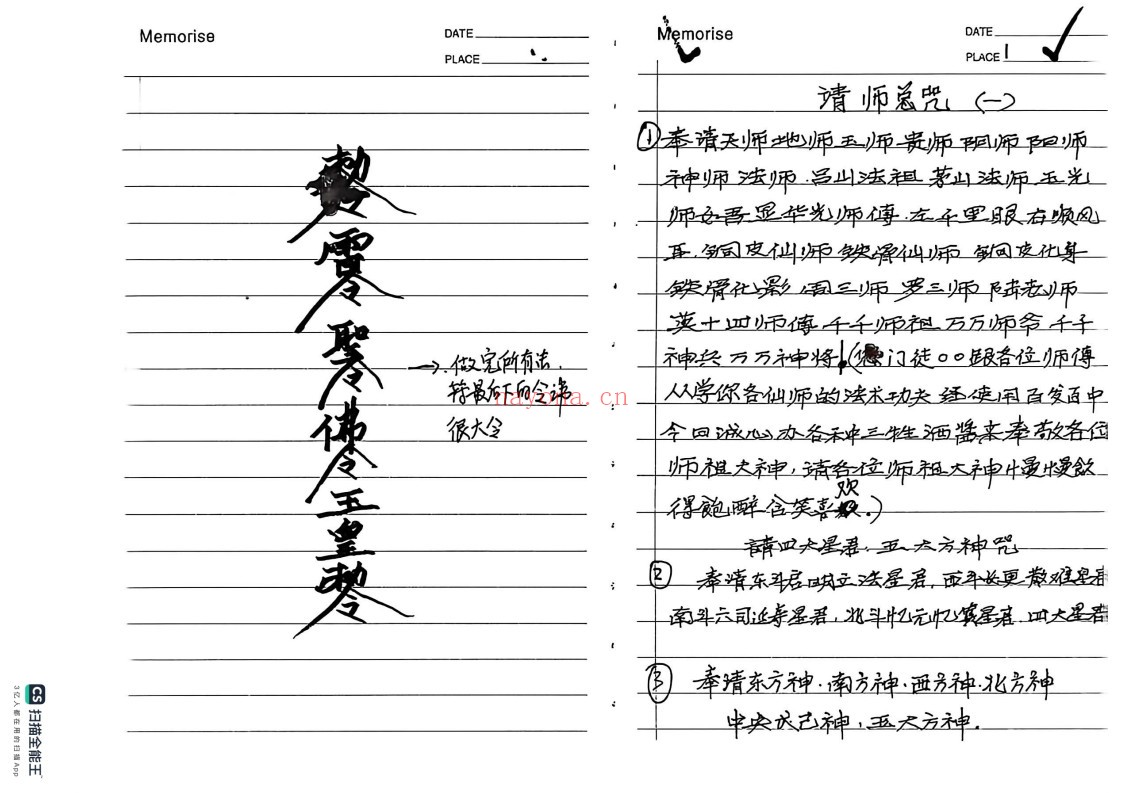 Memorise
DATE
PLACE
雷令
聖令
佛令
玉
皇
敕令
→ 做完所有法,
将最后下的令讳
很大令
nayona.cn
CS 扫描全能王
3亿人都在用的扫描App
Memorise
DATE
PLACE 1
请师总咒 (一)
① 奉请天师地师玉师贵师阴师阳师
神师法师.吕山法祖茅山法师五光
师 吾显华光师傅.左千里眼右顺风
耳.铜皮仙师铁骨仙师 铜皮化身
铁骨化影 周三师 罗三师 陆老师
英十四师傅.千千师祖.万万师爷.千千
神兵万万神将!( 门徒〇〇跟各位师傅
从学你各仙师的法术功夫 使用百发百中
今日诚心办各种三牲酒酱来奉敬各位
师祖大神,请各位师祖大神慢慢飲
得飽醉含笑喜欢.)
請四大星君.五大方神咒
② 奉请东斗君 立法星君.西斗长更散难星君
南斗六司延寿星君,北斗 星君.四大星君
③ 奉请东方神.南方神.西方神.北方神
中央戊己神,五大方神.